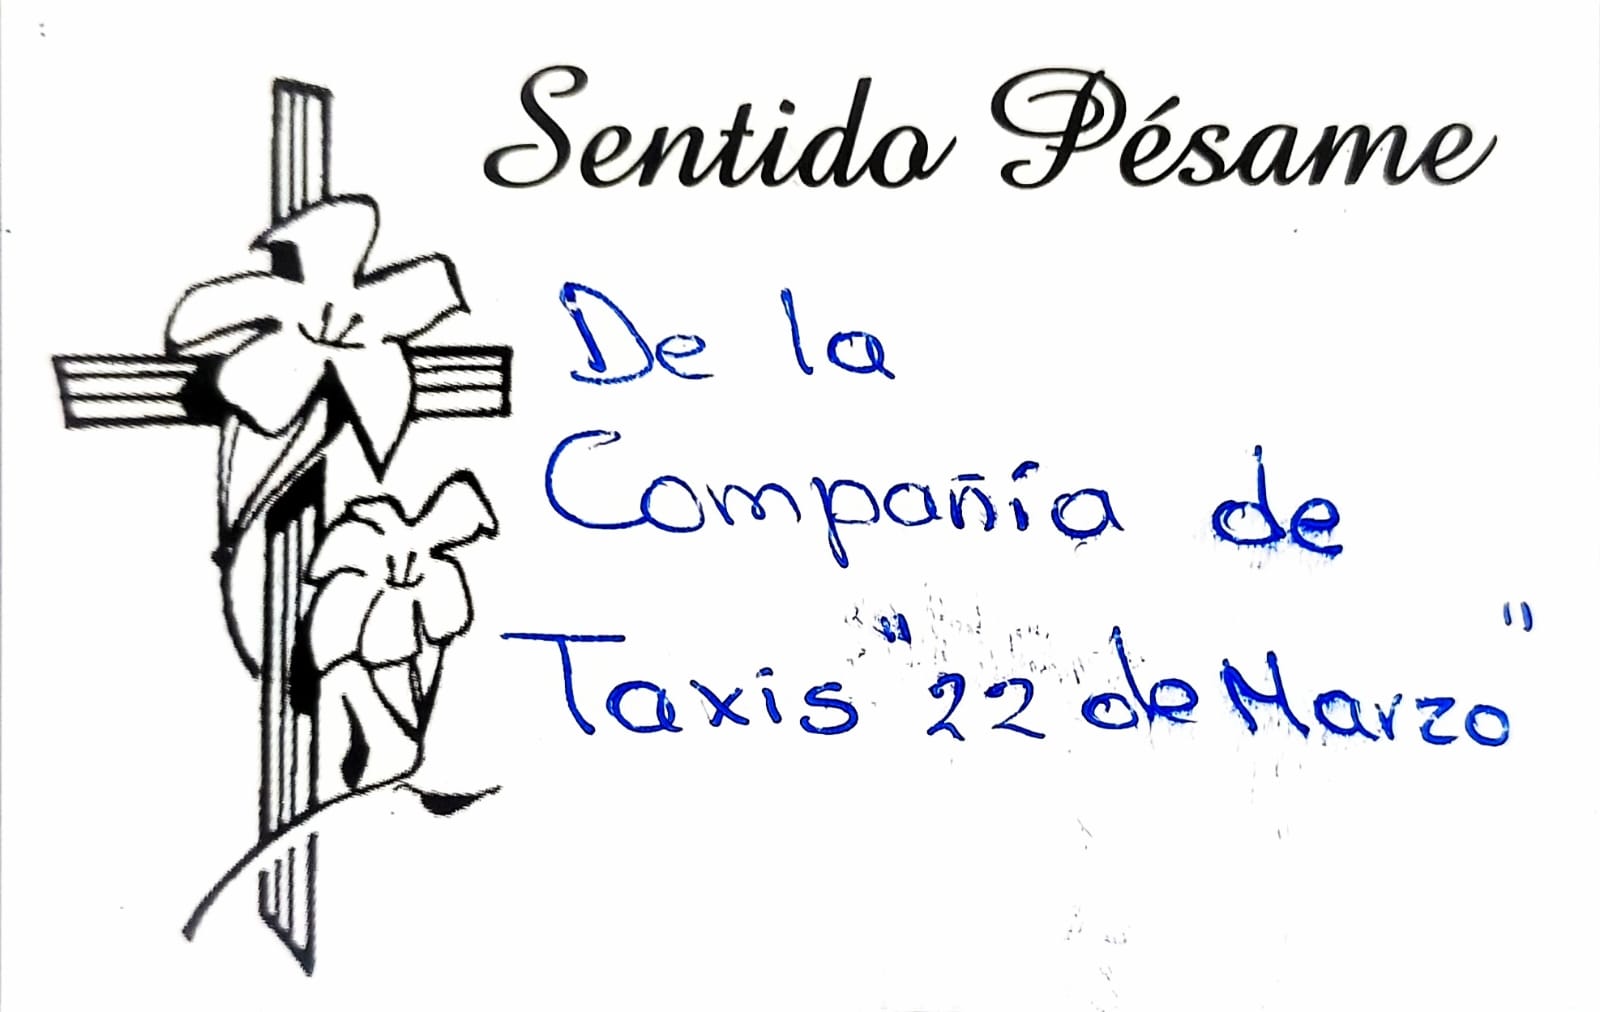 Sentido Pésame
De la
Compañía de
Taxis "22 de Marzo"